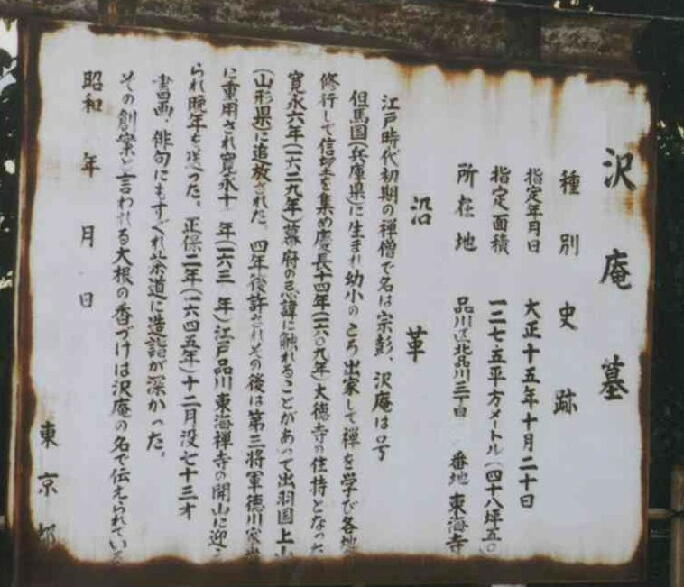 沢庵墓
種別 史跡
指定年月日 大正十五年十月二十日
指定面積 一二七・五平方メートル(四十八坪五〇
所在地 品川区北品川三丁目 番地 東海寺
沿革
江戸時代初期の禅僧で名は宗彭、沢庵は号
但馬国(兵庫県)に生まれ幼小のころ出家して禅を学び各地
修行して信望を集め慶長十四年(一六〇九年)大徳寺の住持となった
寛永六年(一六二九年)幕府の忌諱に触れることがあって出羽国上山
(山形県)に追放された。四年後許されその後は第三将軍徳川家光
に重用され寛永十 年(一六三 年)江戸品川東海禅寺の開山に迎え
られ晩年を送った。正保二年(一六四五年)十二月没七十三才
書画、俳句にもすぐれ茶道に造詣が深かった。
その創案と言われる大根の香づけは沢庵の名で伝えられている
昭和 年 月 日
東京都